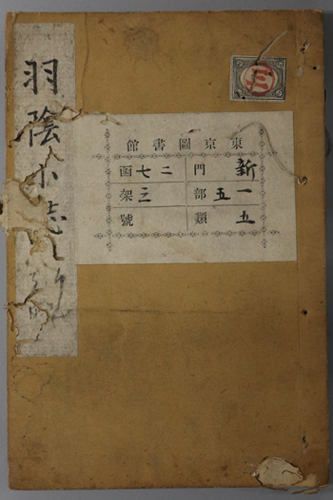 羽陰小志
東京圖書館
新 門 二七 函
一五 部 三 架
五 類 號